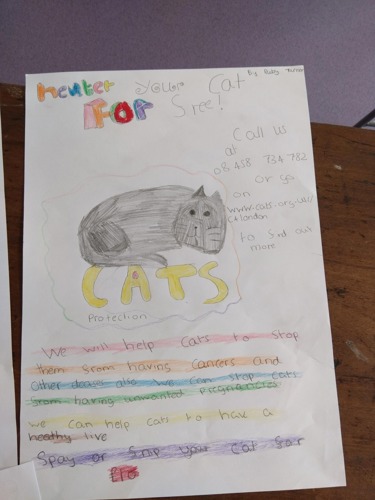 neuter your Cat
FOR Sree!
Call us
at
08458 734 782
or go
on
www.cats-org.us//
to Sind out
more
CATS
Protection
We will help Cats to Stop
them Srom having Cancers and
other also we can stop cats
Srom having unwanted pregnancies
we can help cats to have a
healthy live
Spay or Snip your Cat Sor